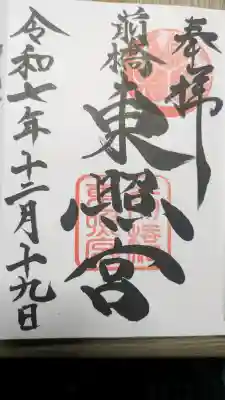 奉拝
前橋
東照宮
令和七年十二月十九日